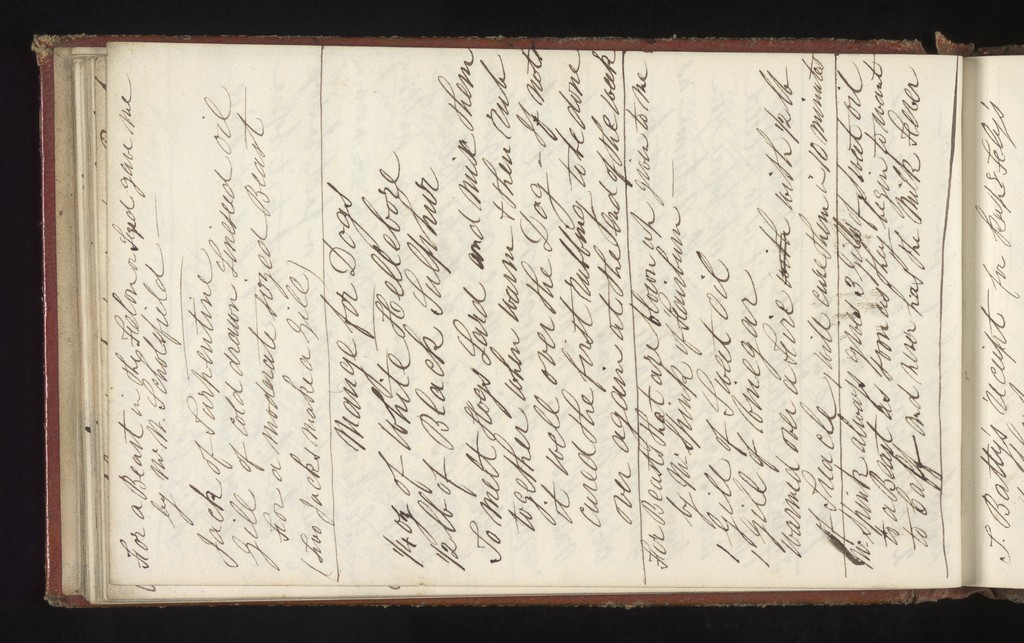 For a Beast in the Felon a Lyed gave me
by Mr W. Scholefield
Jack of Turpentine
Gill of cold drawn Linseed oil
For a moderate sized Beast
(two Jacks make a Gill)
Mange for Dogs
1/4 oz of White Hellebore
1/2 lb of Black Sulphur
To melt Hogs Lard and mix them
together when warm & then rub
it well over the Dog - If not
cured the first rubbing to be done
over again at the last of the week
For Beasts that are boon up given to me
by Mr Spink of
1 Gill of Sweet oil
1 Gill of Vinegar
Warmed over a fire with with 1/2 lb
of Treacle, will cure them in 10 minutes
Mr Spink always gives 3 Gills of sweet oil
to a Beast as soon as they begin to want
to and never has the Milk Fever
J. Battys receipt for